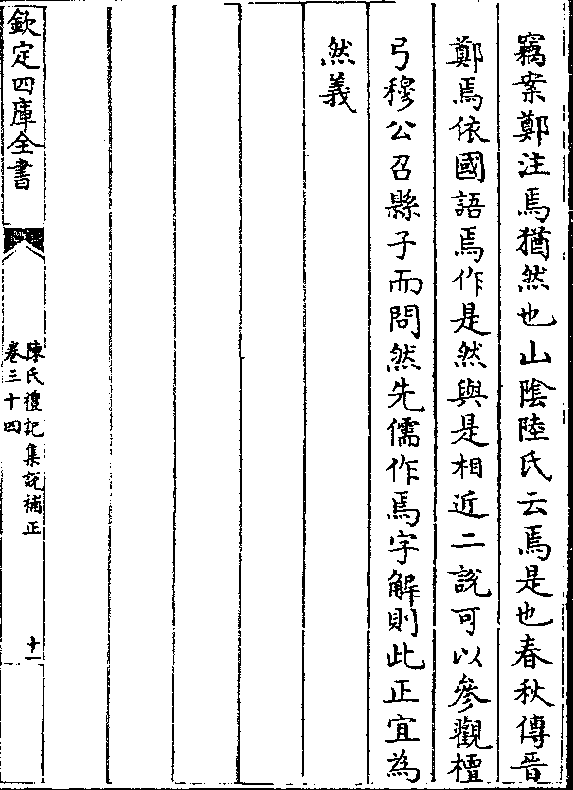 竊案鄭注焉猶然也山隂陸氏云焉是也春秋傳晉
鄭焉依國語焉作是然與是相近二說可以參觀檀
弓穆公召縣子而問然先儒作焉字解則此正宜為
然義
欽定四庫全書
陳氏禮記集説補正
卷三十四
十一